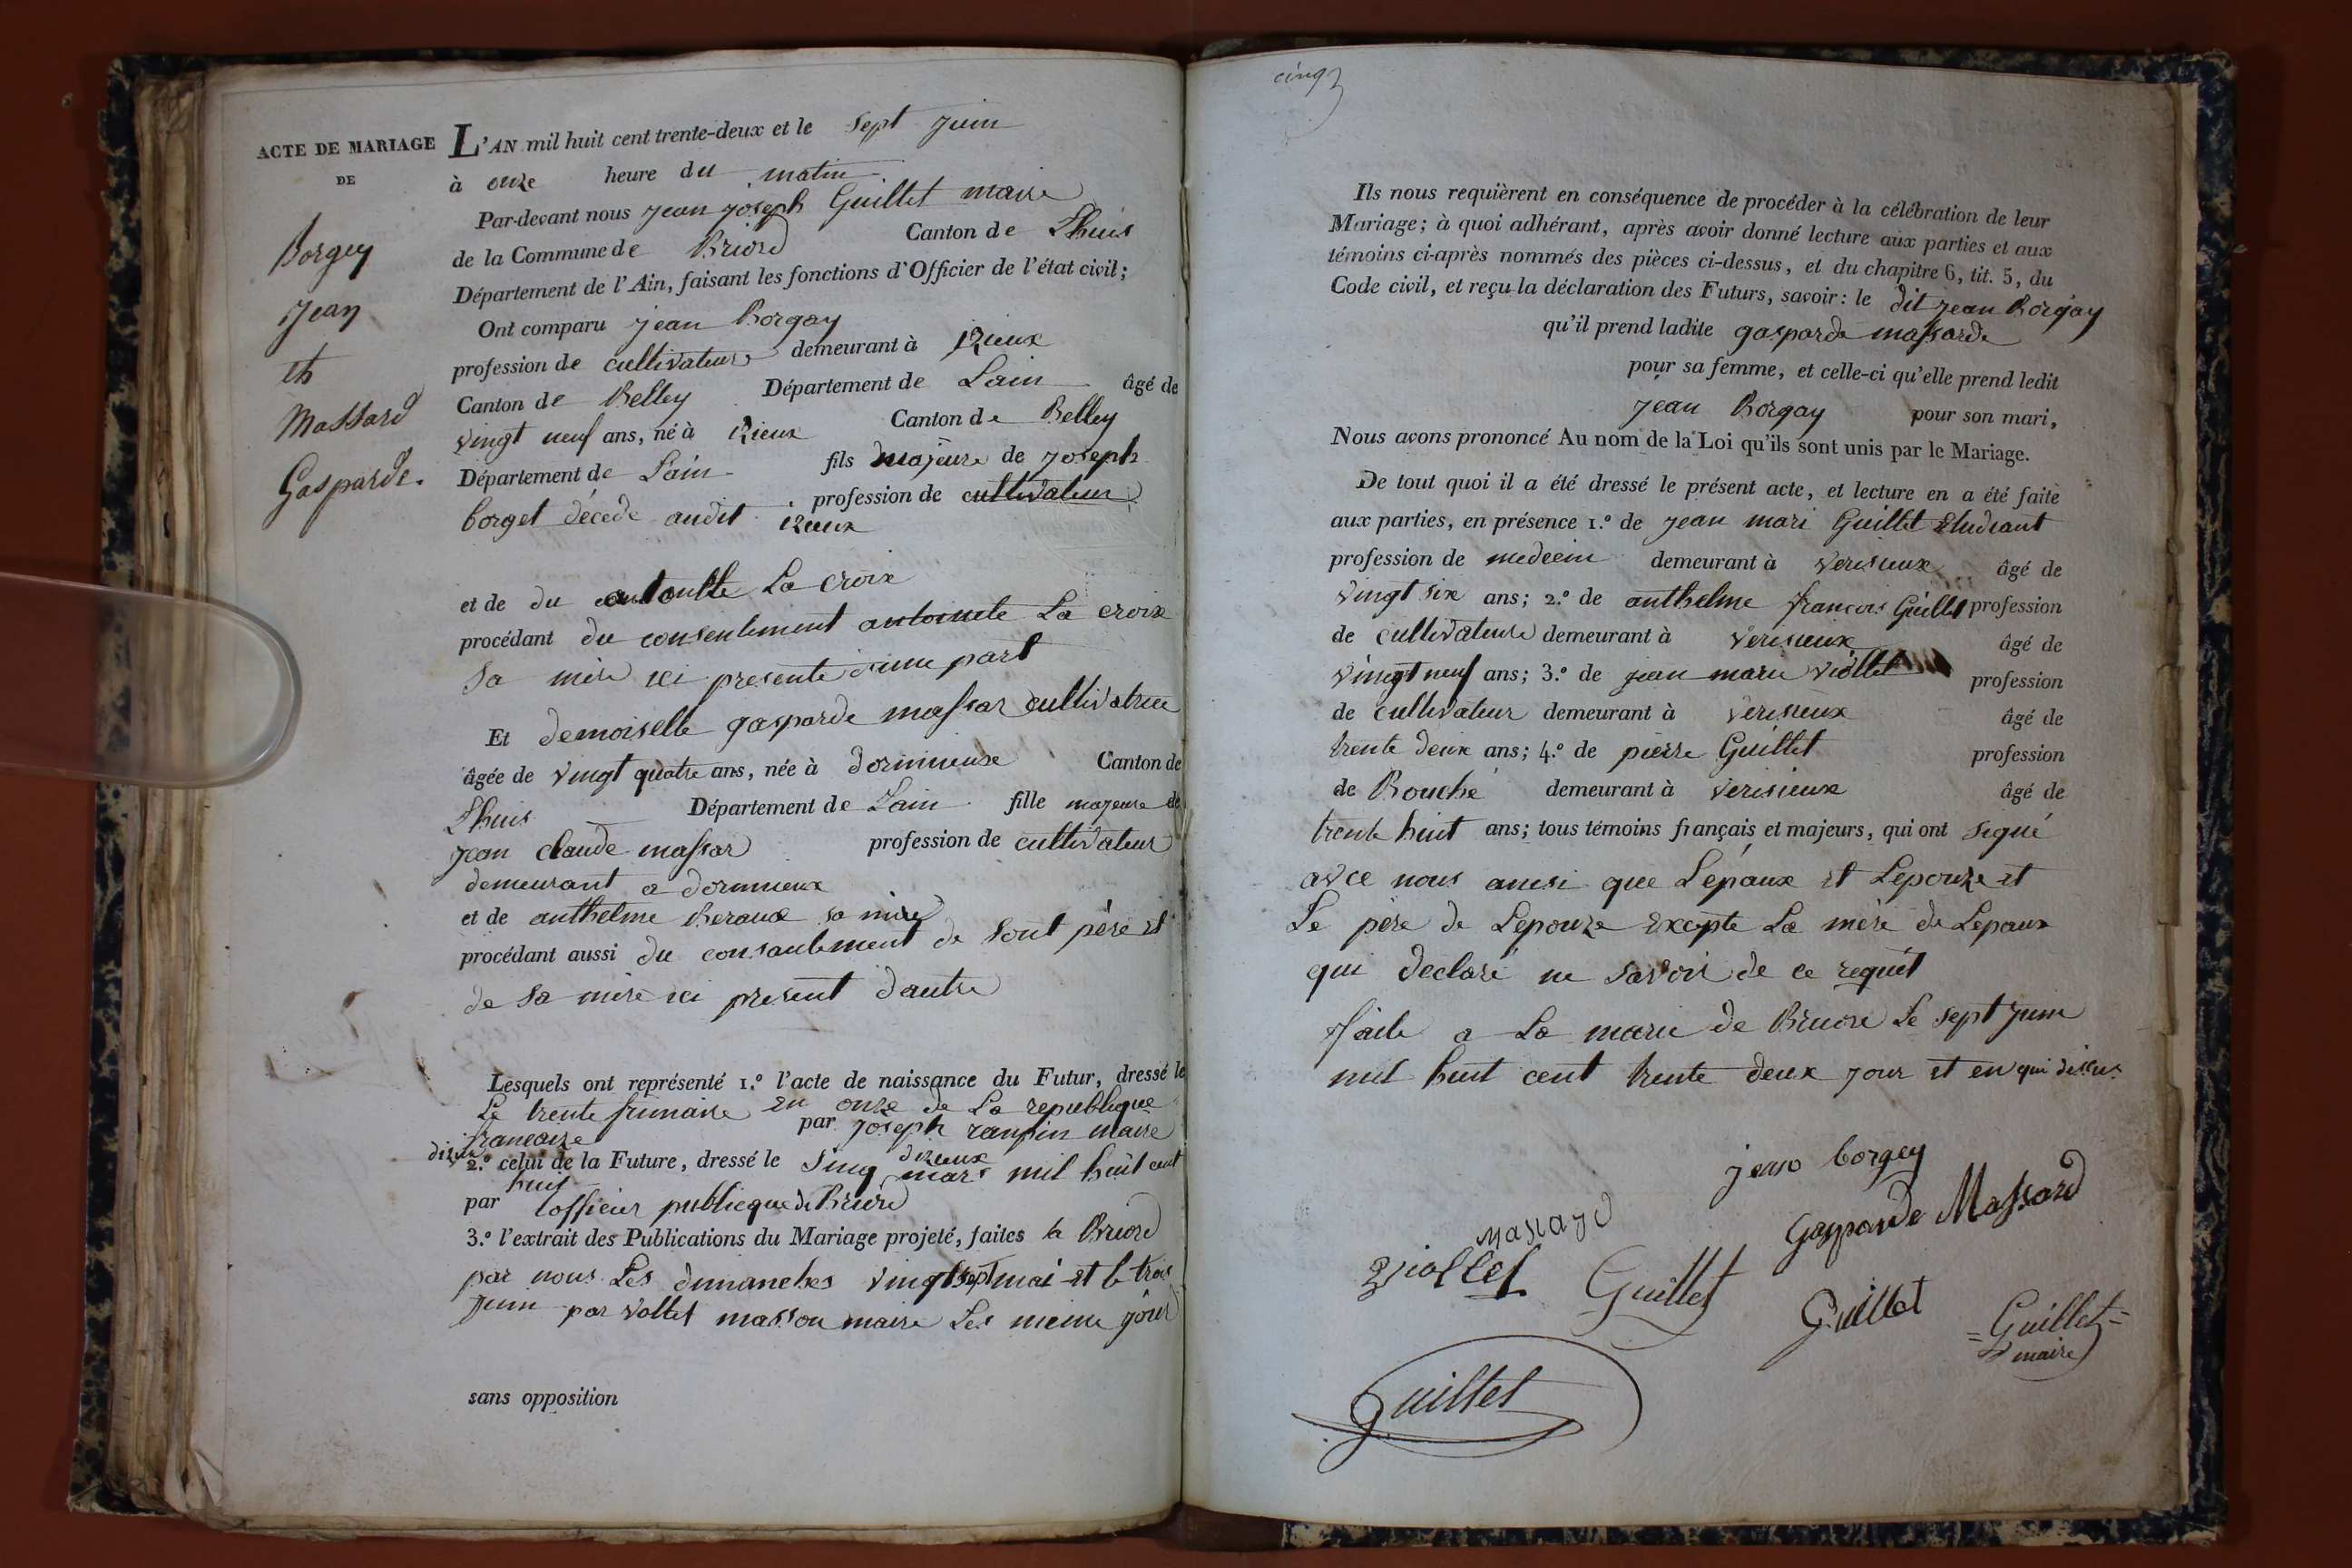 ACTE DE MARIAGE
DE
Borgey
Jean
et
Massard
Gasparde.
L'AN mil huit cent trente-deux et le sept juin
à onze heure du matin
Par-devant nous jean joseph Guillet maire
de la Commune de Briord Canton de Lhuis
Département de l'Ain, faisant les fonctions d'Officier de l'état civil;
Ont comparu jean Borgay
profession de cultivateur demeurant à izieux
Canton de Belley Département de Lain âgé de
vingt neuf ans, né à izieux Canton de Belley
Département de Lain fils majeure de joseph
borget décédé audit izieux profession de cultivateur
et de du La croix
procédant du consentement antoinette La croix
sa mère ici presente d'une part
Et demoiselle gasparde massar cultivatrice
âgée de vingt quatre ans, née à dorminieux Canton de
Lhuis Département de Lain fille majeure de
jean claude massar profession de cultivateur
demeurant a dorminieux
et de anthelme Beraud sa mère
procédant aussi du consantement de sont père et
de sa mère ici present d'autre
Lesquels ont représenté 1.º l'acte de naissance du Futur, dressé le
Le trente frimaire en onze de La republique
francaize par joseph maire
dizieux
2.º celui de la Future, dressé le sinq mars mil huit cent
huit
par lofficier publicque de Briord
3.º l'extrait des Publications du Mariage projeté, faites a Briord
par nous Les dimanches vingt sept mai et le trois
juin par vollet masson maire Les meme jour
sans opposition
cinq
Ils nous requièrent en conséquence de procéder à la célébration de leur
Mariage; à quoi adhérant, après avoir donné lecture aux parties et aux
témoins ci-après nommés des pièces ci-dessus, et du chapitre 6, tit. 5, du
Code civil, et reçu la déclaration des Futurs, savoir: le dit jean Borgay
qu'il prend ladite gasparde massarde
pour sa femme, et celle-ci qu'elle prend ledit
jean Borgay pour son mari,
Nous avons prononcé Au nom de la Loi qu'ils sont unis par le Mariage.
De tout quoi il a été dressé le présent acte, et lecture en a été faite
aux parties, en présence 1.º de jean mari Guillet Etudiant
profession de medecin demeurant à verisieux âgé de
vingt six ans; 2.º de anthelme francois Guillet profession
de cultivateur demeurant à verisieux âgé de
vingt neuf ans; 3.º de jean marie viollet profession
de cultivateur demeurant à verisieux âgé de
trente deux ans; 4.º de pierre Guillet profession
de Bouché demeurant à verisieux âgé de
trente huit ans; tous témoins français et majeurs, qui ont signé
avce nous ainsi que L'épaux et Lepouze et
Le père de Lepouze excepte La mère de Lepaux
qui declaré ne savoir de ce requét
faite a La marie de Briord Le sept juin
mil huit cent trente deux jour et en qui dessus
borgey
Gasparde Massard
Massard
viollet
Guillet
Guillet
Guillet
maire
Guillet